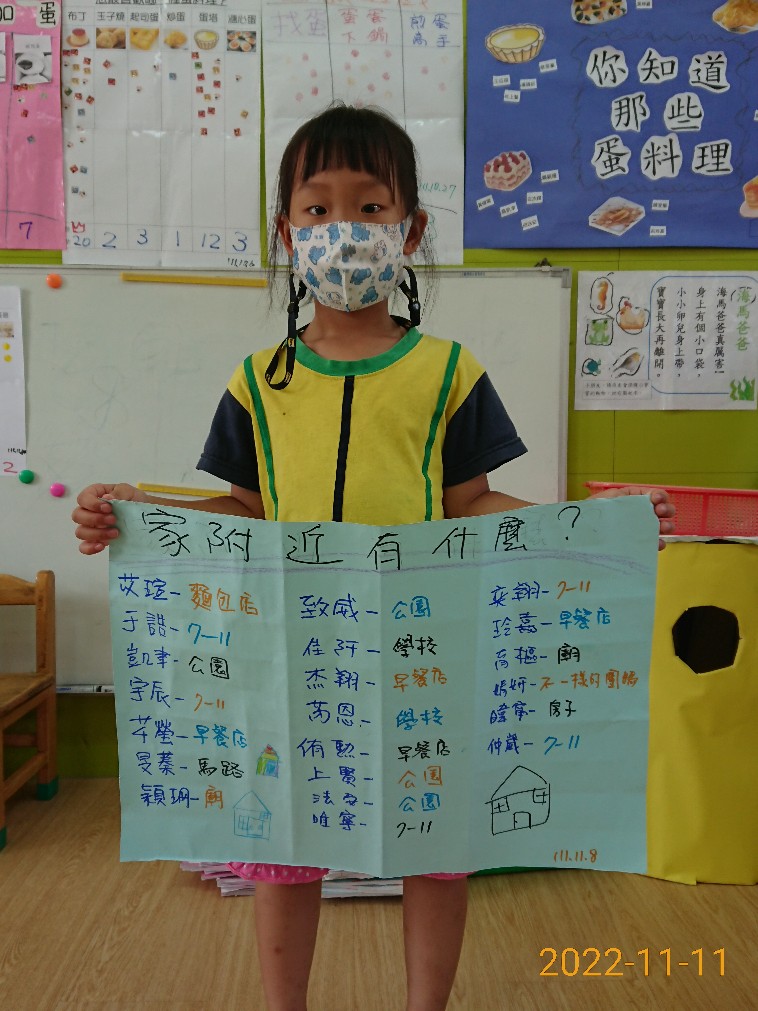 蛋
布丁 玉子燒 起司蛋 炒蛋 蛋塔 溏心蛋
20 2 3 1 12 3
7
找蛋 蜜蛋下鍋 煎蛋高手
10.27
你知道
那些
蛋料理
海馬爸爸
海馬爸爸真厲害
身上有個小口袋，
小小卵兒身上帶，
寶寶長大再離開。
2
家附近有什麼？
艾瑄-麵包店
于誥-7-11
凱聿-公園
宇辰-7-11
芊瑩-早餐店
旻蓁-馬路
穎珊-廟
致威-公園
佳阡-學校
杰翔-早餐店
芮恩-學校
侑勳-早餐店
上賢-公園
公園
唯寧-7-11
奕翔-7-11
玲嘉-早餐店
育樞-廟
嫣妍-不一樣的圍牆
暐甯-房子
仲崴-7-11
111.11.8
2022-11-11